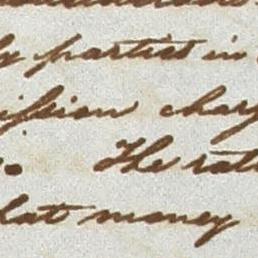 parties in
ission charg
The rat
lat money